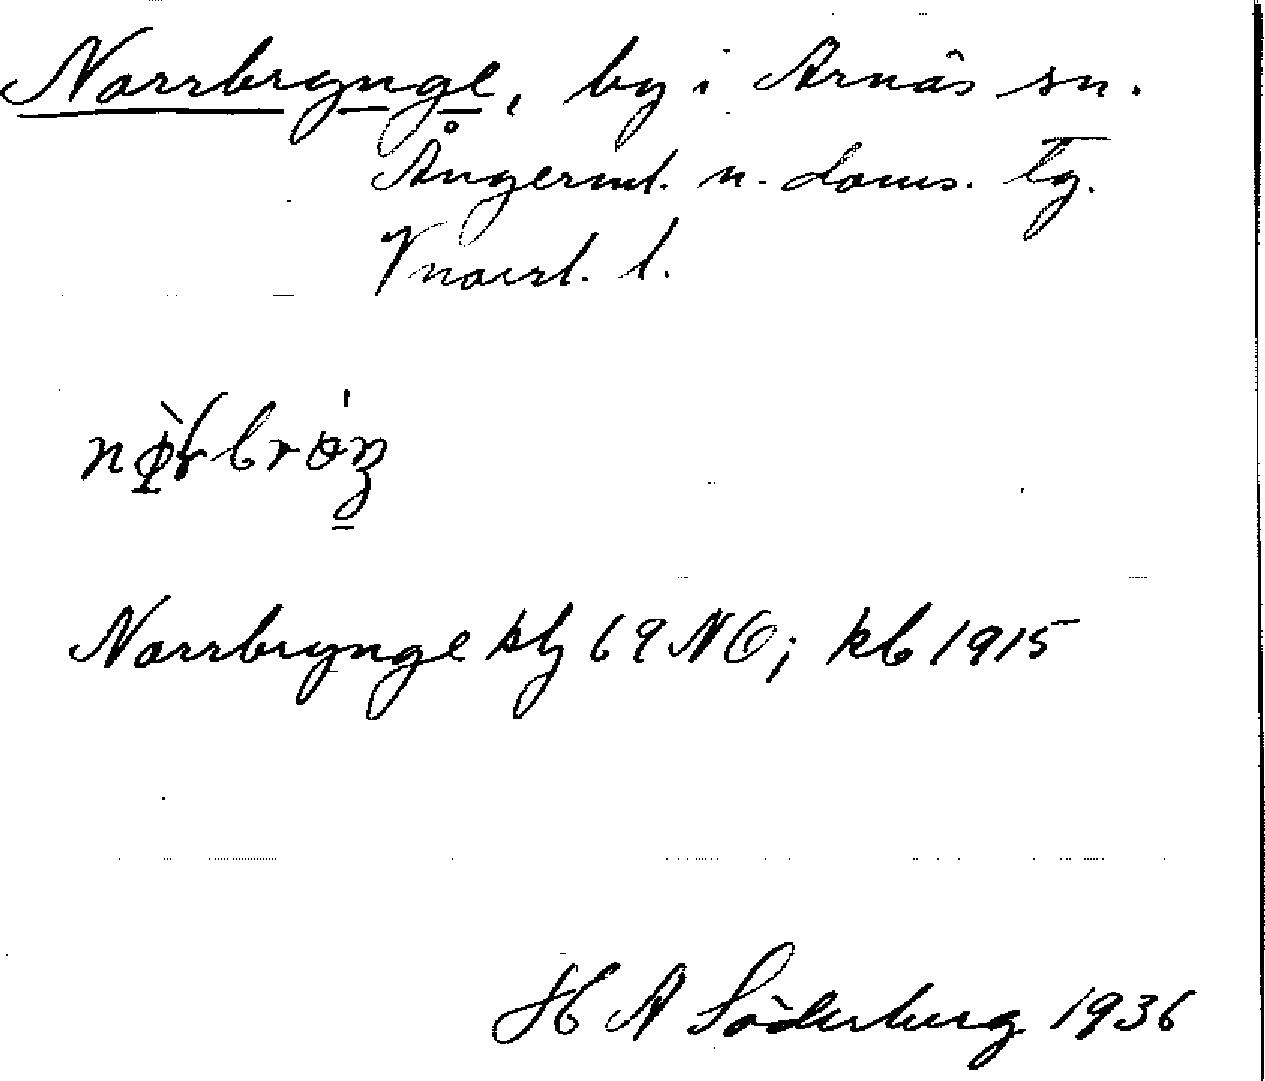 Norrbrynge, by i Arnäs sn.
Ångerml. n. doms. Tg.
Vnorrl. l.
Norrbrynge ktg 69 NO; kb 1915
H A Söderberg 1936